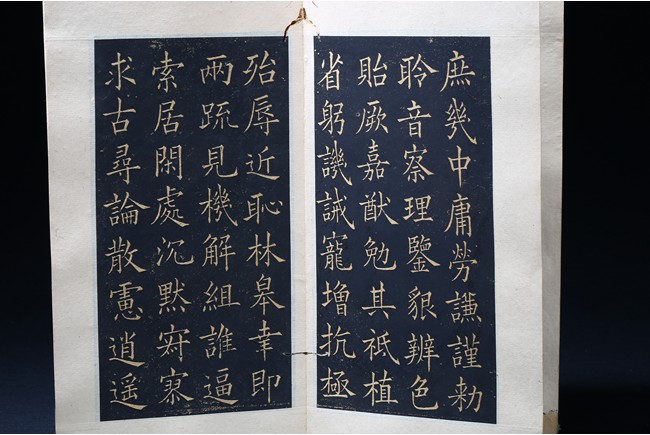 庶幾中庸勞謙謹勅
聆音察理鑒貌辨色
貽厥嘉猷勉其祗植
省躬譏誡寵增抗極
殆辱近恥林皐幸即
兩疏見機解組誰逼
索居閑處沉默寂寥
求古尋論散慮逍遥